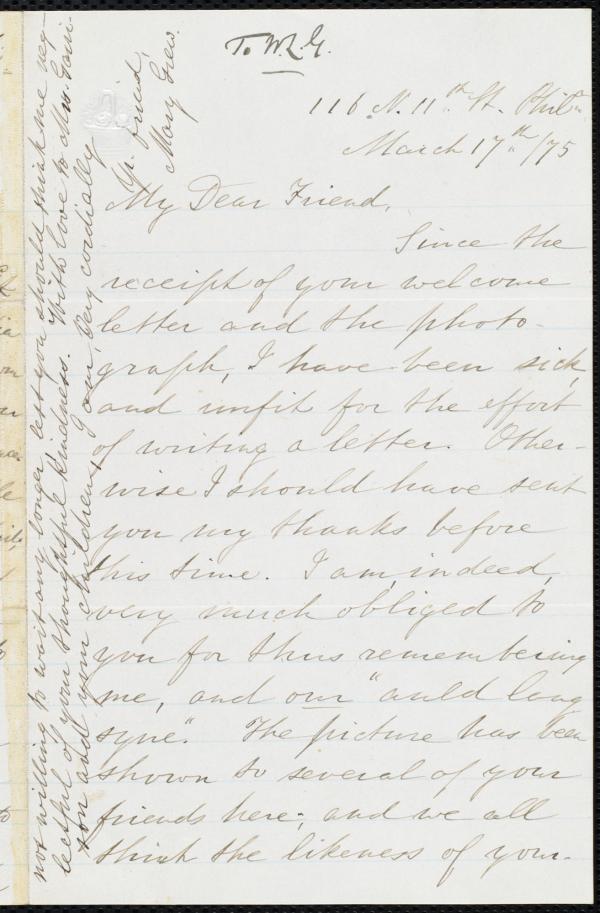 To W. L. G.
116 N. 11th St. Phila
March 17th/75
My Dear Friend,
Since the
receipt of your welcome
letter and the photo-
graph, I have been sick,
and unfit for the effort
of writing a letter. Other-
wise I should have sent
you my thanks before
this time. I am, indeed,
very much obliged to
you for thus remembering
me, and our "auld lang
syne". The picture has been
shown to several of your
friends here; and we all
think the likeness of your-
not willing to wait any longer lest you should think me neg-
lectful of your thoughtful kindness. With love to Mrs. Garri-
son and your children, I am, Very cordially
Yr. friend,
Mary Grew.